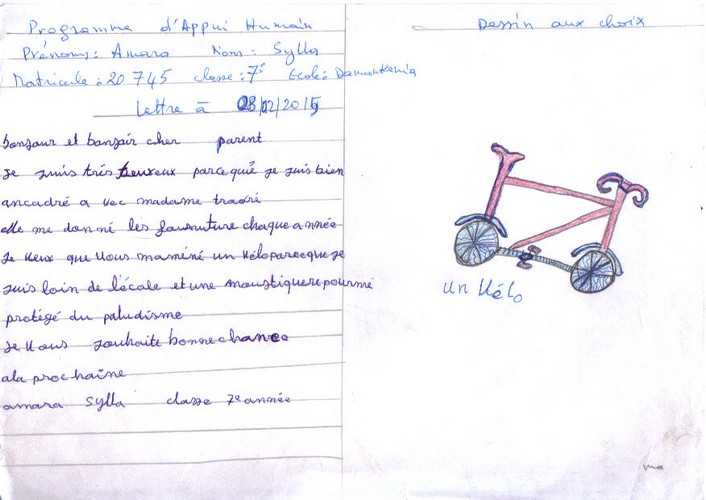 Programme d'Appui Humain
Prénoms: Amara Nom: Sylla
Matricule: 20 745 classe: 7è Ecole: Damankania
Lettre à 08/12/2015
bonjour et bonsoir cher parent
je suis très heuxeux parcequë je suis bien
ancadré a vec madame traoré
elle me donné les fourniture chaque année
je veux que vous maméné un véloparceque je
suis loin de l'école et une moustiquere pourmé
protégé du paludisme
je vous souhaite bonne chance
ala prochaine
amara sylla classe 7e année
Dessin aux choix
un vélo